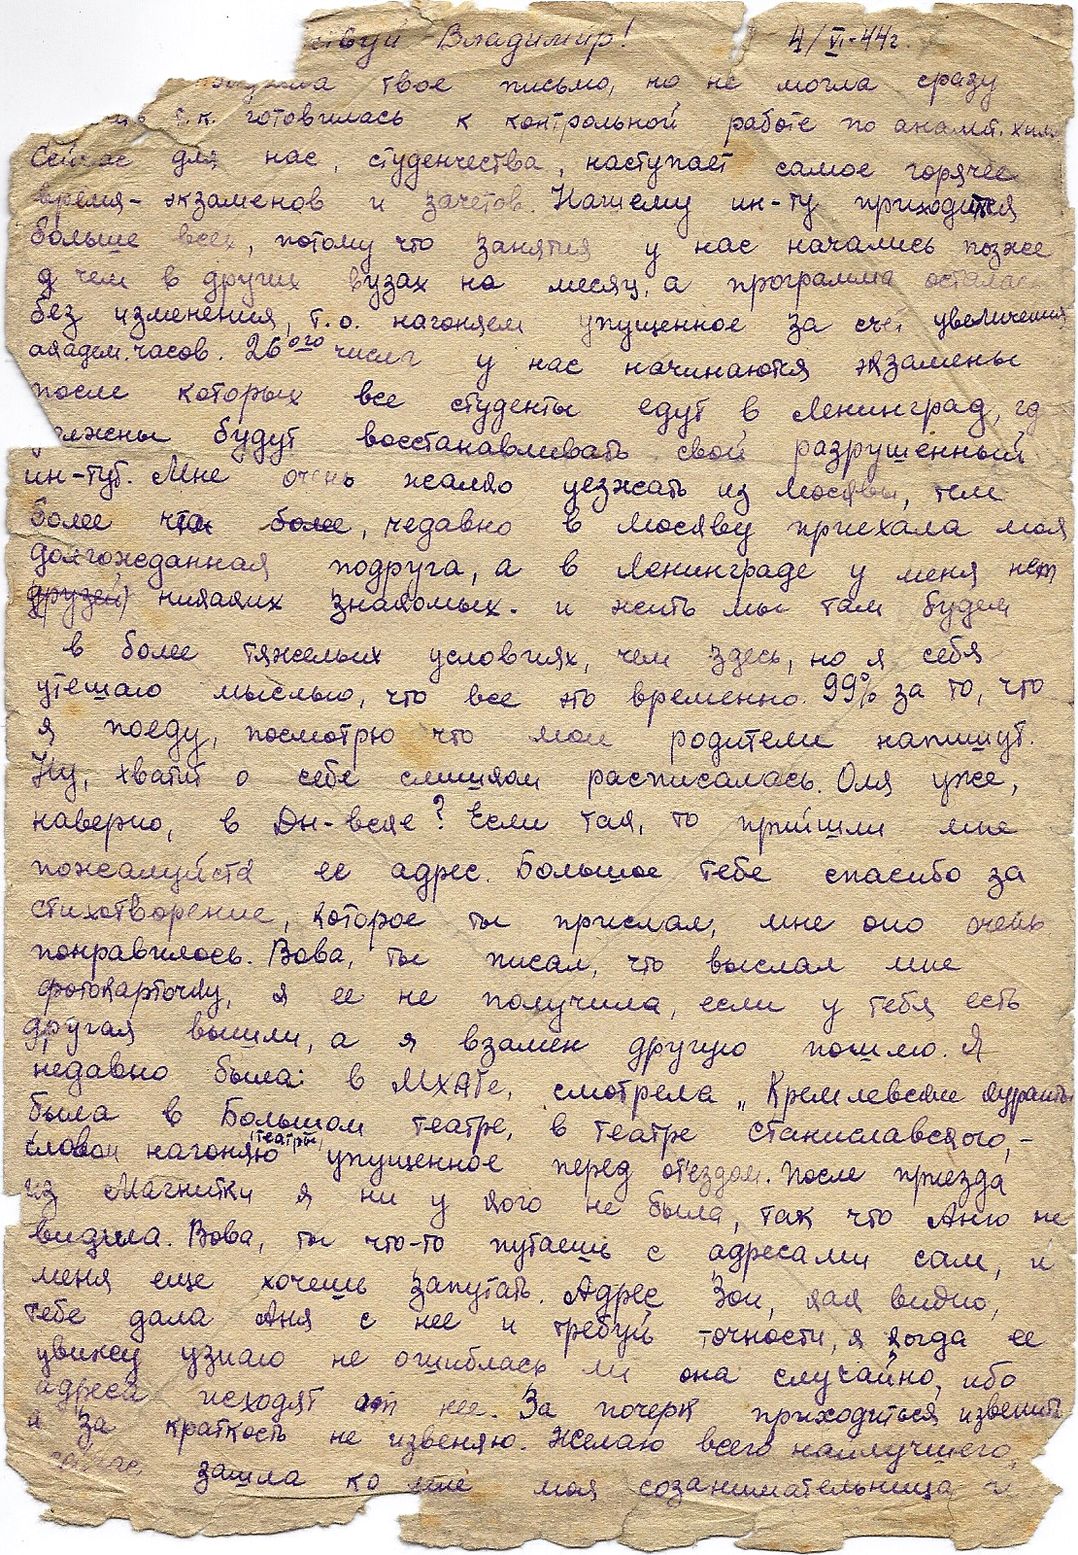 ствуй Владимир! 4/VI-44г.
твое письмо, но не могла сразу
т.к. готовилась к контрольной работе по аналит. хим
Сейчас для нас, студенчества, наступает самое горячее
время - экзаменов и зачетов. Нашему ин-ту приходится
больше всех, потому что занятия у нас начались позже
чем в других вузах на месяц, а программа осталась
без изменения, т.о. нагоняем упущенное за счет увеличения
академ. часов. 26ого числа у нас начинаются экзамены
после которых все студенты едут в Ленинград, гд
олжны будут восстанавливать свой разрушенный
ин-тут. Мне очень жалко уезжать из Москвы, тем
более что более, недавно в Москву приехала моя
долгожданная подруга, а в Ленинграде у меня нет
друзей никаких знакомых. и жить мы там будем
в более тяжелых условиях, чем здесь, но я себя
утешаю мыслью, что все это временно. 99% за то, что
я поеду, посмотрю что мои родители напишут.
Ну, хватит о себе слишком расписалась. Оля уже,
наверно, в Дн-вске? Если так, то пришли мне
пожалуйста ее адрес. Большое тебе спасибо за
стихотворение, которое ты прислал, мне оно очень
понравилось. Вова, ты писал, что выслал мне
фотокарточку, я ее не получила, если у тебя есть
другая вышли, а я взамен другую пошлю. Я
недавно была в МХАТе, смотрела „Кремлевские куранты
была в Большом театре, в театре Станиславского, -
словом нагоняю (театры) упущенное перед от'ездом. После приезда
из Магнитки я ни у кого не была, так что Аню не
видила. Вова, ты что-то путаешь с адресами сам, и
меня еще хочешь запутать. Адрес Зои, как видно,
тебе дала Аня с нее и требуй точности, я когда ее
увижу узнаю не ошиблась ли она случайно, ибо
адреса исходят от нее. За почерк приходиться извенить
а за краткость не извеняю. Желаю всего наилучшего,
зашла ко мне моя созанимательница и